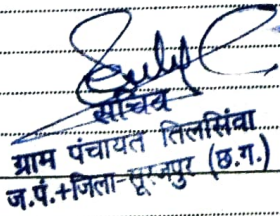 सचिव
ग्राम पंचायत तिलसिंवा
ज.पं.+जिला-सूरजपुर (छ.ग.)